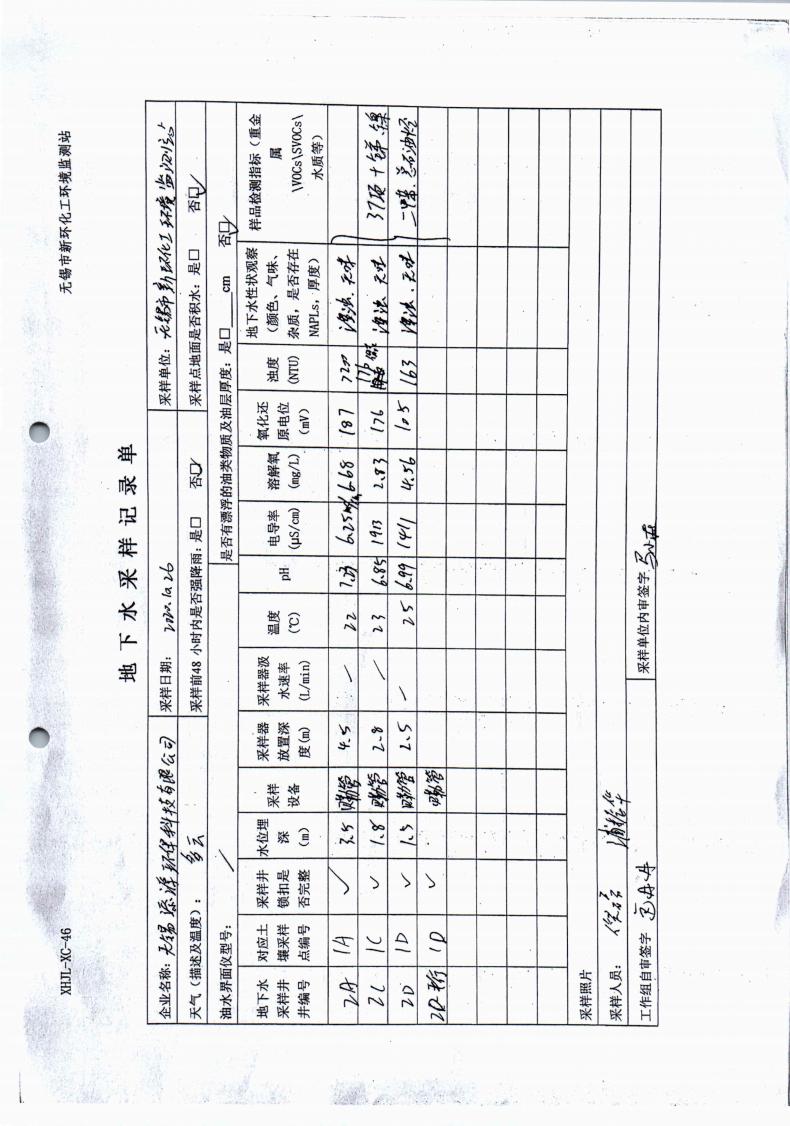 XHJL-XC-46 无锡市新环化工环境监测站
地下水采样记录单
企业名称：无锡 环保科技有限公司 采样日期：2020.10.26 采样单位：无锡市新环化工环境监测站
天气（描述及温度）：多云 采样前48小时内是否强降雨：是□ 否☑ 采样点地面是否积水：是□ 否☑
油水界面仪型号：／ 是否有漂浮的油类物质及油层厚度：是□____cm 否☑
地下水采样井井编号 对应土壤采样点编号 采样井锁扣是否完整 水位埋深（m） 采样设备 采样器放置深度(m) 采样器汲水速率(L/min) 温度(℃) pH 电导率(μS/cm) 溶解氧(mg/L) 氧化还原电位(mV) 浊度(NTU) 地下水性状观察（颜色、气味、杂质，是否存在NAPLs，厚度） 样品检测指标（重金属\VOCs\SVOCs\水质等）
2A 1A ✓ 3.5 贝勒管 4.5 ／ 22 7.23 6.68 187 720 浑浊、无味
2C 1C ✓ 1.8 贝勒管 2.8 ／ 23 6.85 1913 2.83 176 浑浊、无味 37项+锑、镍
2D 1D ✓ 1.5 贝勒管 2.5 ／ 25 6.99 1411 4.56 105 163 浑浊、无味 二甲苯、总石油烃
2D平行 1D ✓ 贝勒管
采样照片
采样人员：
工作组自审签字 采样单位内审签字